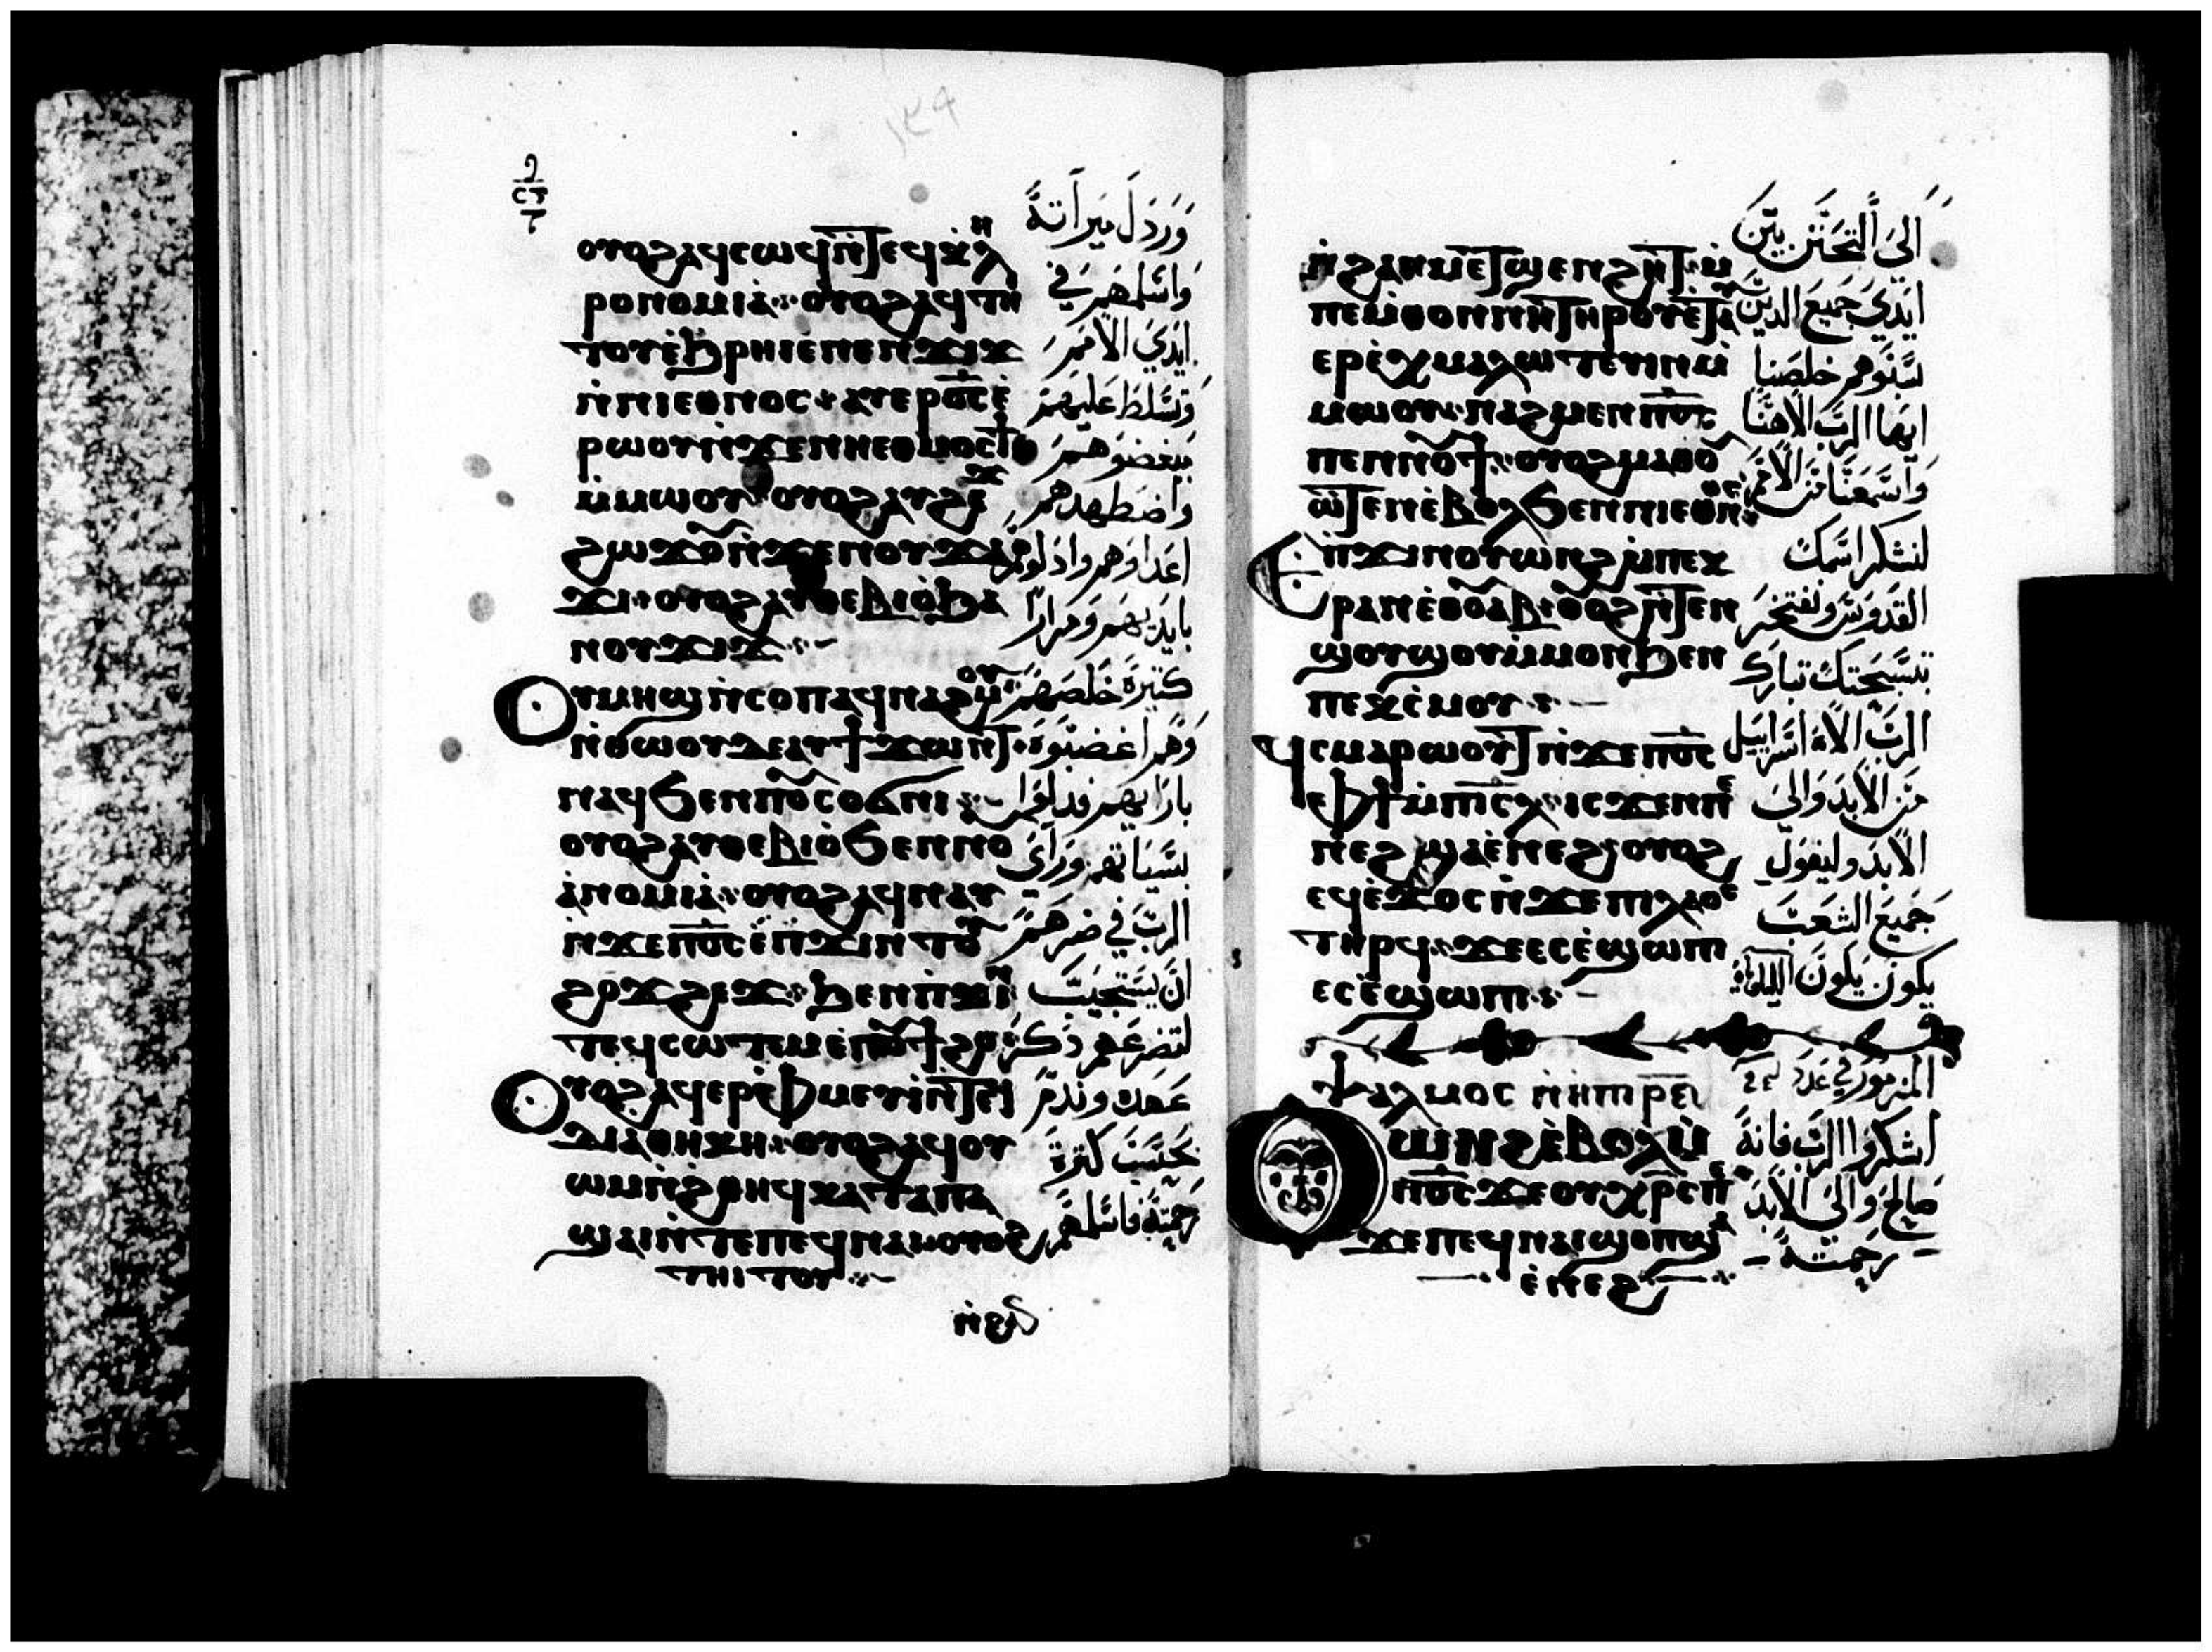 ⲟⲩⲟϩ ⲁϥⲥⲱϥ ⲛ̀ϯⲉϥⲕ̀ⲗⲏ
ⲣⲟⲛⲟⲙⲓⲁ̀ ⲟⲩⲟϩ ⲁϥⲧⲏ
ⲧⲟⲩ ⲉ̀ϧⲣⲏⲓ ⲉⲛⲉⲛϫⲓϫ
ⲛ̀ⲛⲓⲉⲑⲛⲟⲥ ⲁⲩⲉⲣⲟ̅ⲥ̅ ⲉ̀
ⲣⲱⲟⲩ ⲛ̀ϫⲉ ⲛⲏⲉⲑⲙⲟⲥϯ
ⲙ̀ⲙⲱⲟⲩ ⲟⲩⲟϩ ⲁⲩϩⲉϫ
ϩⲱϫⲟⲩ ⲛ̀ϫⲉ ⲛⲟⲩϫⲁ
ϫⲓ ⲟⲩⲟϩ ⲁⲩⲑⲉⲃⲓⲟ̀ ϧⲁ
ⲛⲟⲩϫⲓϫ
ⲟⲩⲙⲏϣ ⲛ̀ⲥⲟⲡ ⲁϥⲛⲁϩⲙⲟⲩ
ⲛ̀ⲑⲱⲟⲩ ⲇⲉ ⲁⲩϯϫⲱⲛⲧ
ⲛⲁϥ ϧⲉⲛ ⲡⲟⲩⲥⲟϭⲛⲓ
ⲟⲩⲟϩ ⲁⲩⲑⲉⲃⲓⲟ̀ ϧⲉⲛ ⲛⲟⲩ
ⲁ̀ⲛⲟⲙⲓⲁ̀ ⲟⲩⲟϩ ⲁϥⲛⲁⲩ
ⲛ̀ϫⲉ ⲡ̅ⲟ̅ⲥ̅ ⲉ̀ⲡϫⲓⲛⲧⲟⲩ
ϩⲟϫϩⲉϫ ϧⲉⲛ ⲡ̀ϫⲓⲛ
ⲧⲉϥⲥⲱⲧⲉⲙ ⲉ̀ⲡⲟⲩϯϩⲟ
ⲟⲩⲟϩ ⲁϥⲉⲣⲫ̀ⲙⲉⲩⲓ̀ ⲛ̀ϯⲉϥ
ⲇⲓⲁⲑⲏⲕⲏ ⲟⲩⲟϩ ⲁϥⲟⲩ
ⲱⲙ ⲛ̀ϩⲑⲏϥ ⲕⲁⲧⲁ ⲡⲁ
ϣⲁⲓ ⲛ̀ⲧⲉ ⲡⲉϥⲛⲁⲓ ⲟⲩⲟϩ
ⲧⲏⲓⲧⲟⲩ
ⲛ̀ϩⲁⲛ
وَرَدَل ميرَاته
وَاسلمهم في
ايدي الامم
وَتسلط عَليهم
مبغضوهم
وَاضطهدهم
اعداوهم واذلوهم
بايديهم وَمرارًا
كثيرة خَلصهم
وَهم اغضبوه
بارايهم فذلوا
بسياتهم ورَاي
الرب في ضرهم
ان يستجيب
لتضرعهم ذكر
عَهده وندم
بحسب كثرة
رحمته فاسلمهم
ⲛ̀ϩⲁⲛⲙⲉⲧϣⲉⲛϩⲏⲧ ⲙ̀
ⲡⲉⲙ̀ⲑⲟ ⲛ̀ⲛⲏ ⲧⲏⲣⲟⲩ ⲉ̀ⲧⲁⲩ
ⲉⲣⲉ̀ⲭⲙⲁⲗⲱⲧⲉⲩⲓⲛ ⲙ̀
ⲙⲱⲟⲩ ⲛⲁϩⲙⲉⲛ ⲡ̅ⲟ̅ⲥ̅
ⲡⲉⲛⲛⲟⲩϯ ⲟⲩⲟϩ ⲙⲁⲑⲟⲩ
ⲱϯⲉⲛ ⲉ̀ⲃⲟⲗ ϧⲉⲛ ⲛⲓⲉⲑⲛⲟⲥ
ⲉⲡϫⲓⲛⲟⲩⲱⲛϩ ⲙ̀ⲡⲉⲕ
ⲣⲁⲛ ⲉ̀ⲑⲟⲩⲁⲃ ⲟⲩⲟϩ ⲛ̀ϯⲉⲛ
ϣⲟⲩϣⲟⲩ ⲙ̀ⲙⲟⲛ ϧⲉⲛ
ⲡⲉⲕⲥ̀ⲙⲟⲩ
ϥⲥⲙⲁⲣⲱⲟⲩⲧ ⲛ̀ϫⲉ ⲡ̅ⲟ̅ⲥ̅
ⲫϯ ⲙ̀ⲡⲓ̅ⲥ̅ⲗ̅ ⲓⲥϫⲉⲛ ⲡⲉ̀
ⲛⲉϩ ϣⲁ ⲉ̀ⲛⲉϩ ⲟⲩⲟϩ
ⲉϥⲉ̀ϫⲟⲥ ⲛ̀ϫⲉ ⲡⲓⲗⲁⲟⲥ
ⲧⲏⲣϥ ϫⲉ ⲉⲥⲉ̀ϣⲱⲡⲓ
ⲉⲥⲉ̀ϣⲱⲡⲓ
ⲯⲁⲗⲙⲟⲥ
ⲟⲩⲱⲛϩ ⲉ̀ⲃⲟⲗ ⲙ̀
ⲡ̅ⲟ̅ⲥ̅ ϫⲉ ⲟⲩⲭⲣ̅ⲥ̅ ⲡⲉ
ϫⲉ ⲡⲉϥⲛⲁⲓ ϣⲟⲡ ϣⲁ
ⲉ̀ⲛⲉϩ
الي التحنن بين
ايدي جميع الدين
سبوهم خلصنا
ايها الرب الاهنا
وَاسمعنا من الامم
لنشكر اسمك
القدوس ونفتخر
بتسبحتك تبارك
الرب الاه اسرايل
من الابد وَالي
الابد وليقول
جميع الشعب
يكون يكون
المزمور في عدد
اشكروا الرب فانه
صالح وَالي الابد
رحمته